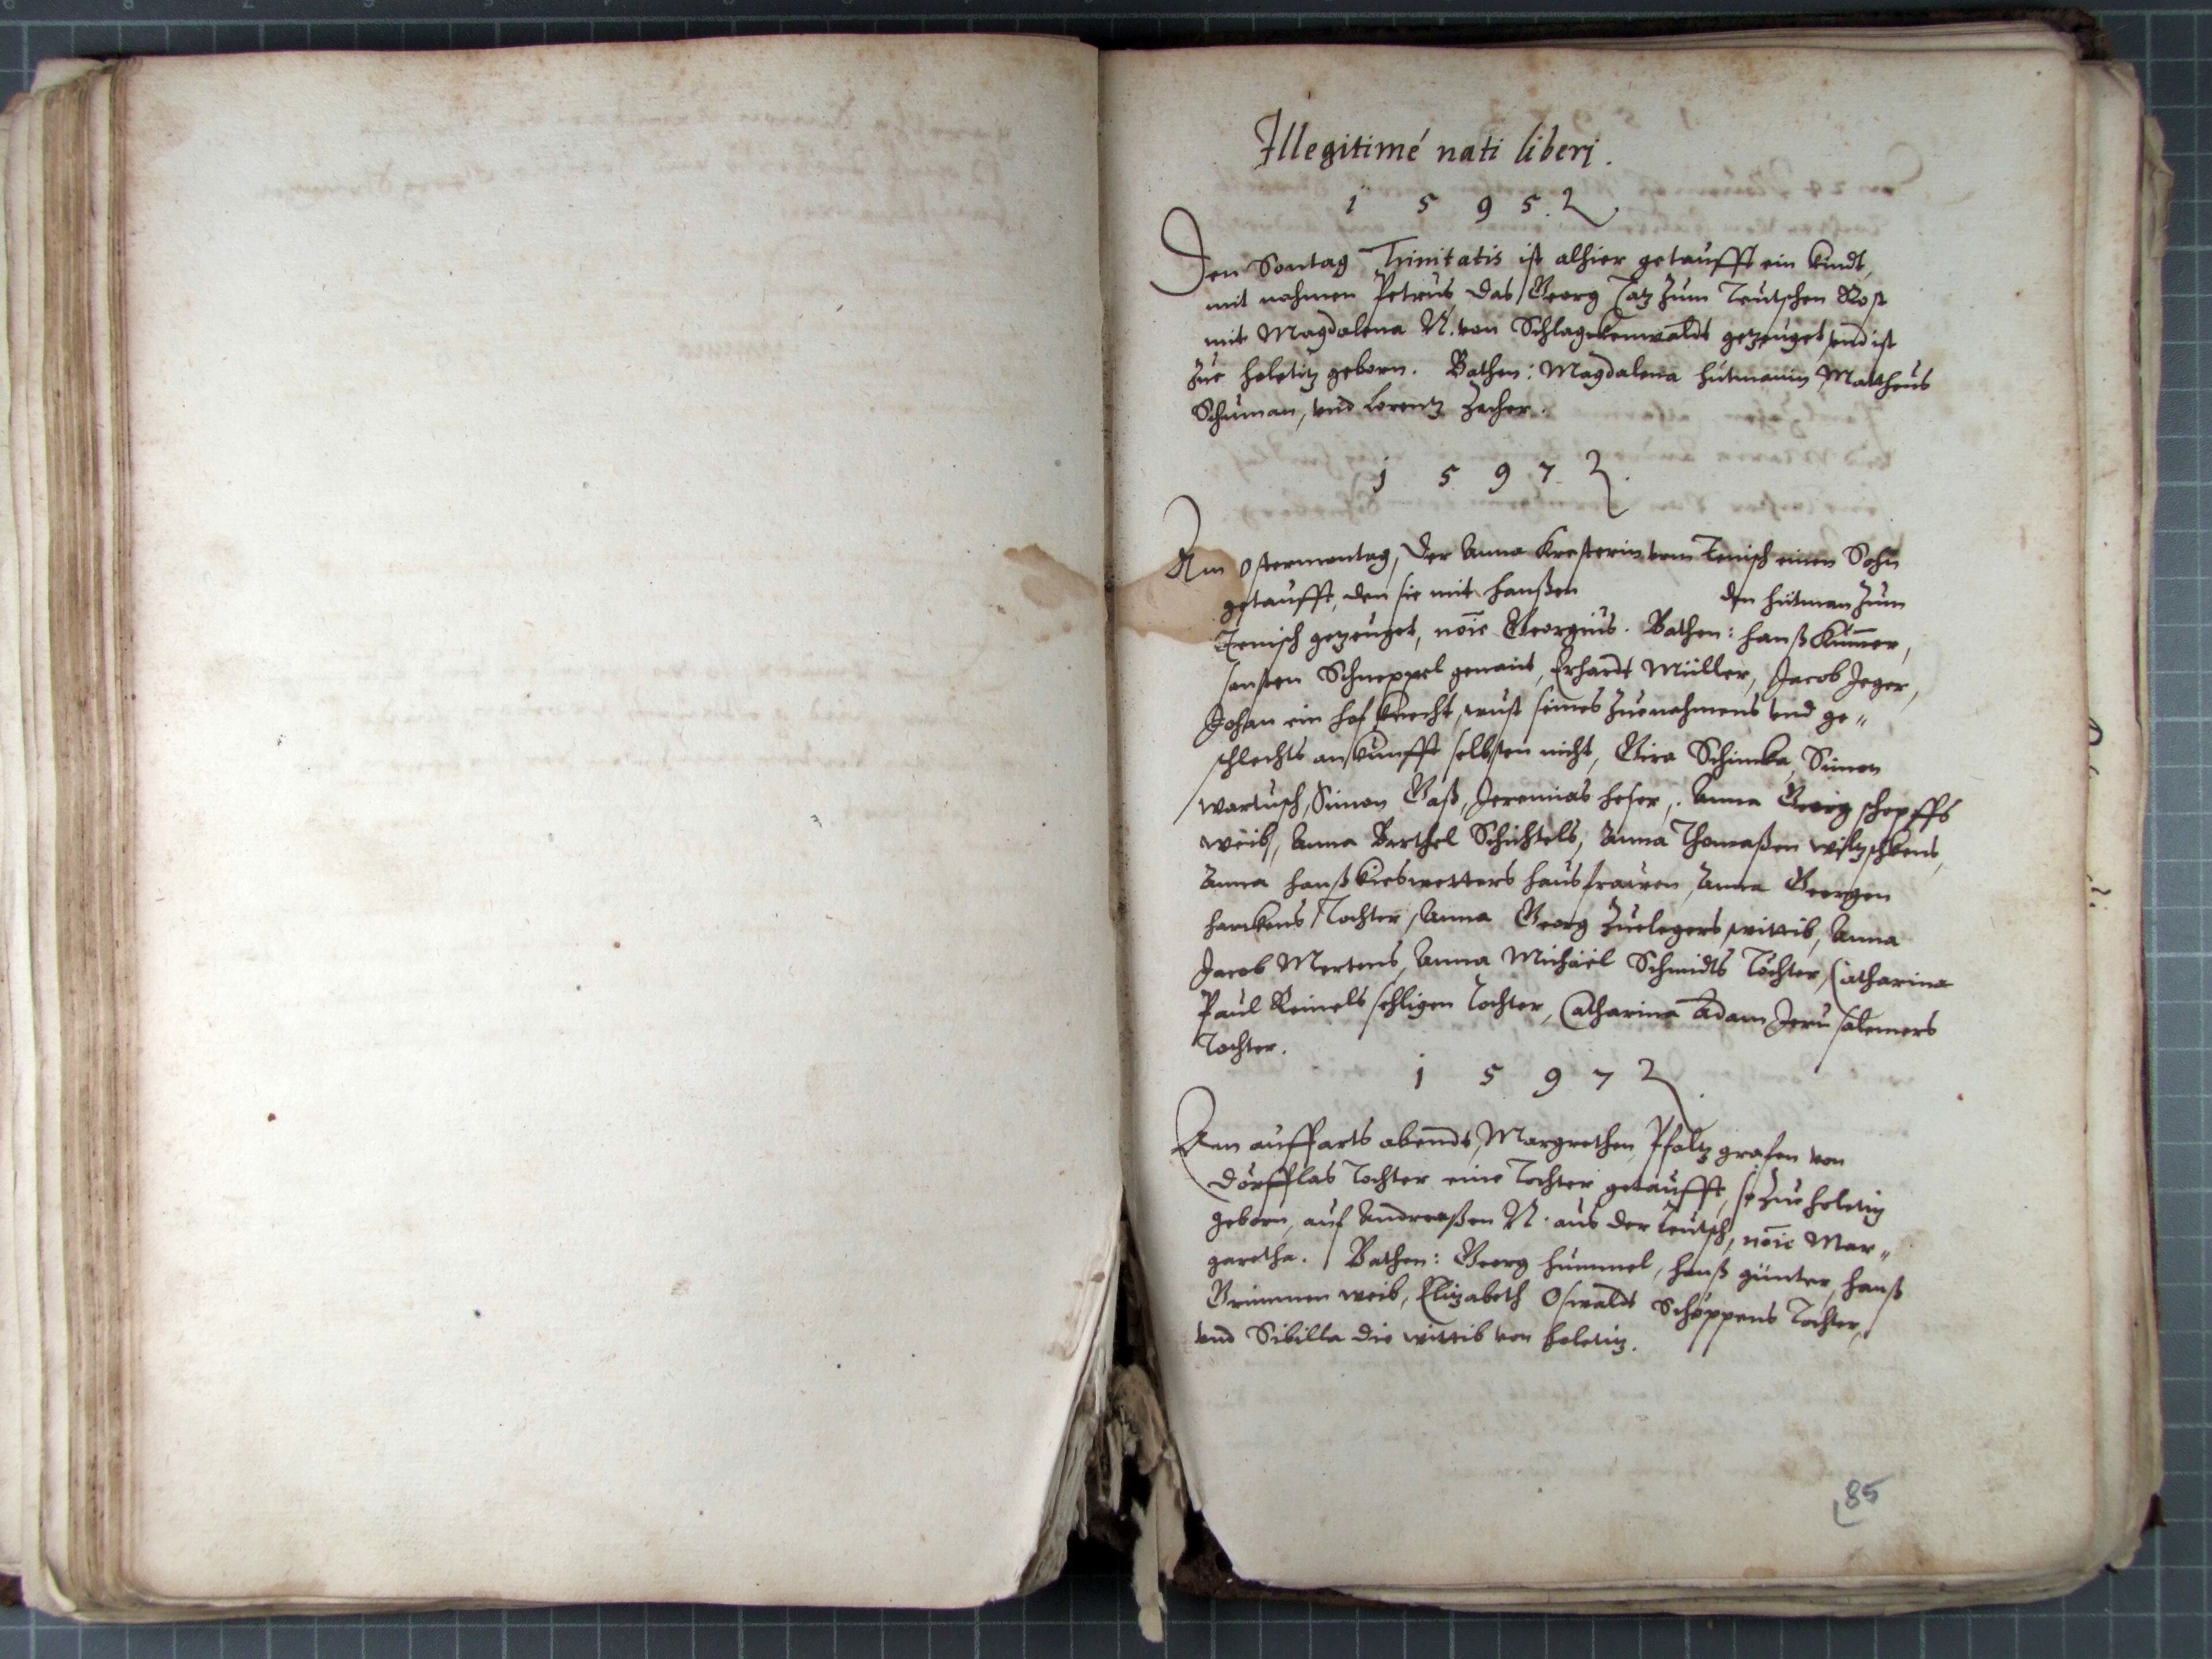 Illegitimé nati liberj.
1 5 9 5.
Den Sontag Trinitatis ist alhier getaufft ein kindt,
mit nahmen Petrus, das Georg Catz zum Teutschen Rost
mit Magdalena N. von Schlagkenwaldt gezeuget, vnd ist
zue holetitz geborn. Pathen: Magdalena hutmanin, Mattheus
Schuman, vnd Lorentz Zacher.
1 5 9 7.
Am Ostermontag, der Anna vom Tenisch einen Sohn
getaufft, den sie mit hanßen den hütman zum
Tenisch gezeuget, nõie Georgius. Pathen: hanß Kum̃er,
sonsten Schneppel genant, Erhardt Müller, Jacob Jeger,
Johan ein hof knecht, wust seines zuenahmens vnd ge„
schlechts ankunfft selbsten nicht, Gira Schimka, Simon
wartusch, Simon Gaß, Jeremias heser, Anna Georg schopffs
weib, Anna Barthel Schichtels, Anna Thomaßen
Anna hanß kieswetters hausfrawen, Anna Georgen
harckens Tochter, Anna Georg Zuelegers wittib, Anna
Jacob Mertens, Anna Michäel Schmidts Töchter, Catharina
Paul Reinels sehligen Tochter, Catharina Adam Jerusalemers
Tochter.
1 5 9 7
Am auffarts abendt, Margrethen, Pfaltzgrafen von
Dörfflas Tochter eine Tochter getaufft, so zue holetitz
geborn, auf Andreaßen N. aus der Teutsch, nõie Mar„
garetha. Pathen: Georg hummel, hanß günter, hanß
Grimmen weib, Elizabeth Oswaldt Schöppens Tochter,
vnd Sibilla die wittib von holetitz.
85